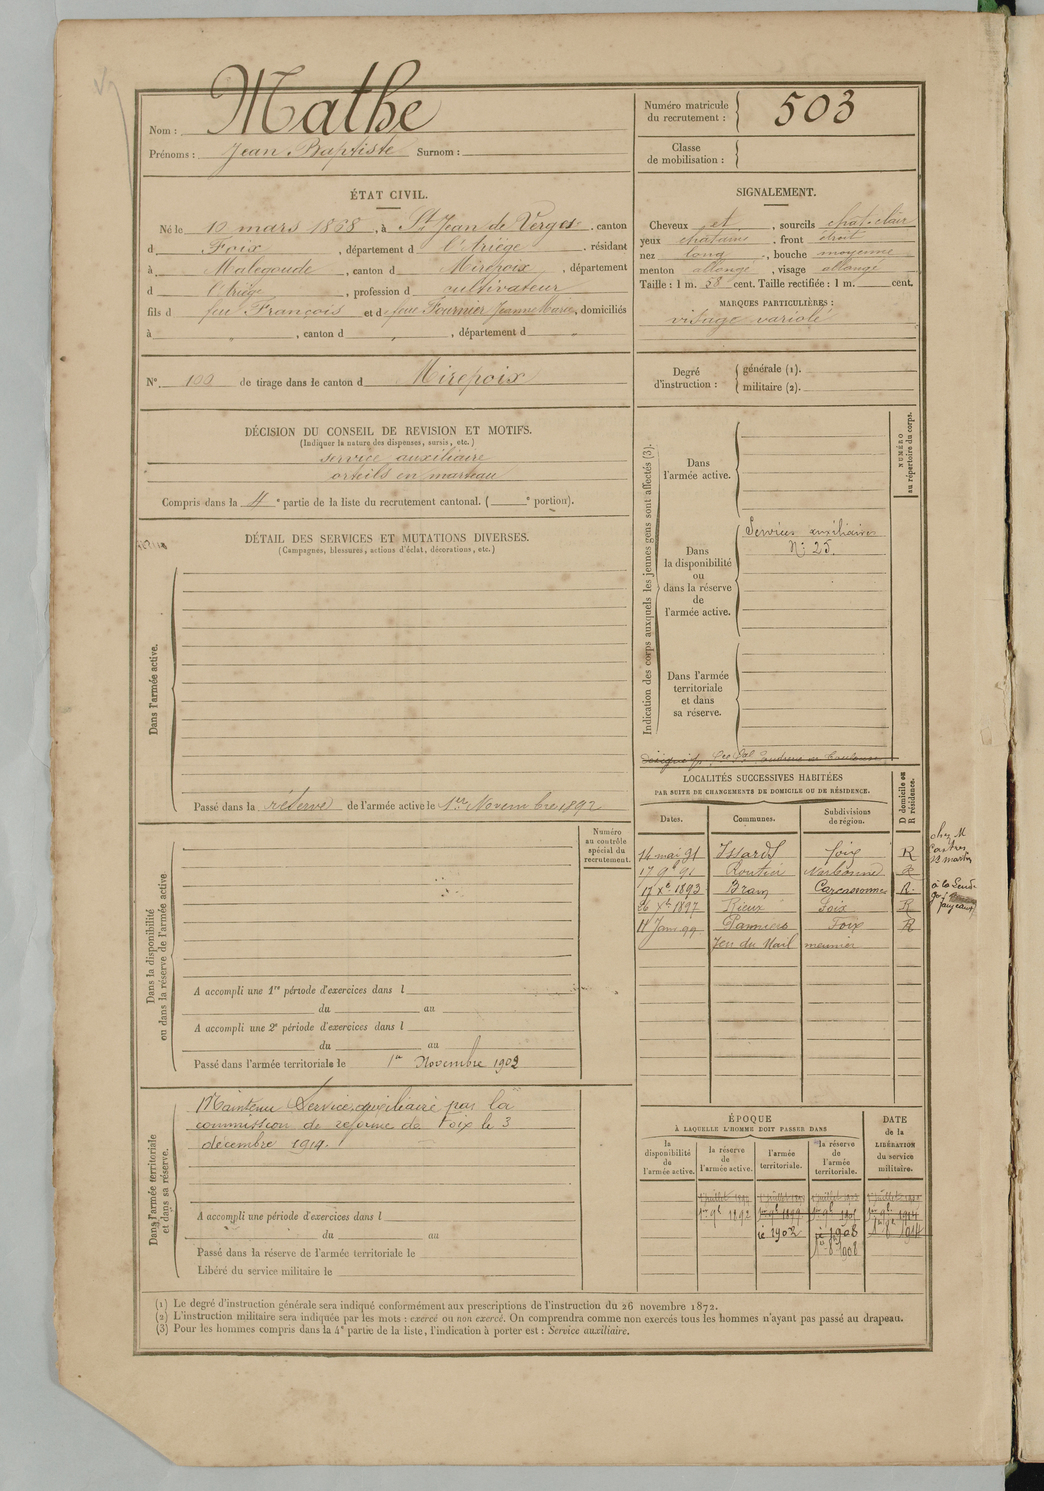 Nom : Mathe
Prénoms : Jean Baptiste Surnom :
Numéro matricule
du recrutement : 503
Classe
de mobilisation :
ÉTAT CIVIL.
Né le 10 mars 1868, à St Jean de Verges, canton
d Foix, département d l'Ariège, résidant
à Malegoude, canton d Mirepoix, département
d l'Ariège, profession d cultivateur
fils d feu François et d feue Fournier Jeanne Marie, domiciliés
à , canton d , département d
N° 100 de tirage dans le canton d Mirepoix
SIGNALEMENT.
Cheveux et , sourcils chat. clair
yeux chatains , front étroit
nez long , bouche moyenne
menton allongé , visage allongé
Taille : 1 m. 58 cent. Taille rectifiée : 1 m. cent.
MARQUES PARTICULIÈRES :
visage variolé
Degré
d'instruction :
générale (1).
militaire (2).
DÉCISION DU CONSEIL DE REVISION ET MOTIFS.
(Indiquer la nature des dispenses, sursis, etc.)
service auxiliaire
orteils en marteau
Compris dans la 4e partie de la liste du recrutement cantonal. ( e portion).
DÉTAIL DES SERVICES ET MUTATIONS DIVERSES.
(Campagnes, blessures, actions d'éclat, décorations, etc.)
Dans l'armée active.
Passé dans la réserve de l'armée active le 1er Novembre 1892
Indication des corps auxquels les jeunes gens sont affectés (3).
NUMÉRO
au répertoire du corps.
Dans
l'armée active.
Dans
la disponibilité
ou
dans la réserve
de
l'armée active.
Services auxiliaires
N° 25.
Dans l'armée
territoriale
et dans
sa réserve.
LOCALITÉS SUCCESSIVES HABITÉES
PAR SUITE DE CHANGEMENTS DE DOMICILE OU DE RÉSIDENCE.
D domicile ou
R résidence.
Dates. Communes. Subdivisions
de région.
14 mai 91 Issards Foix R
17 9bre 91 Routier Narbonne R
17 Xbre 1893 Bram Carcassonne R
26 Xbre 1897 Rieux Foix R
11 Janv 99 Pamiers Foix R
Jeu du Mail meunier
chez M
Numéro
au contrôle
spécial du
recrutement.
Dans la disponibilité
ou dans la réserve de l'armée active
A accompli une 1re période d'exercices dans l
du au
A accompli une 2e période d'exercices dans l
du au
Passé dans l'armée territoriale le 1er Novembre 1902
Dans l'armée territoriale
et dans sa réserve.
Maintenu Service auxiliaire par la
commission de réforme de Foix le 3
décembre 1914.
A accompli une période d'exercices dans l
du au
Passé dans la réserve de l'armée territoriale le
Libéré du service militaire le
ÉPOQUE
À LAQUELLE L'HOMME DOIT PASSER DANS
DATE
de la
LIBÉRATION
du service
militaire.
la
disponibilité
de
l'armée active.
la réserve
de
l'armée active.
l'armée
territoriale.
la réserve
de
l'armée
territoriale.
1er 9bre 1892
1902
1908
1914
(1) Le degré d'instruction générale sera indiqué conformément aux prescriptions de l'instruction du 26 novembre 1872.
(2) L'instruction militaire sera indiquée par les mots : exercé ou non exercé. On comprendra comme non exercés tous les hommes n'ayant pas passé au drapeau.
(3) Pour les hommes compris dans la 4e partie de la liste, l'indication à porter est : Service auxiliaire.